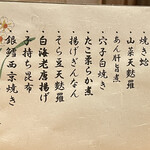 ・焼き蛤
・山菜天麩羅
・あん肝旨煮
・穴子白焼き
・たこ柔らか煮
・揚げぎんなん
・そら豆天麩羅
・白海老唐揚げ
・子持ち昆布
・銀鱈西京焼き